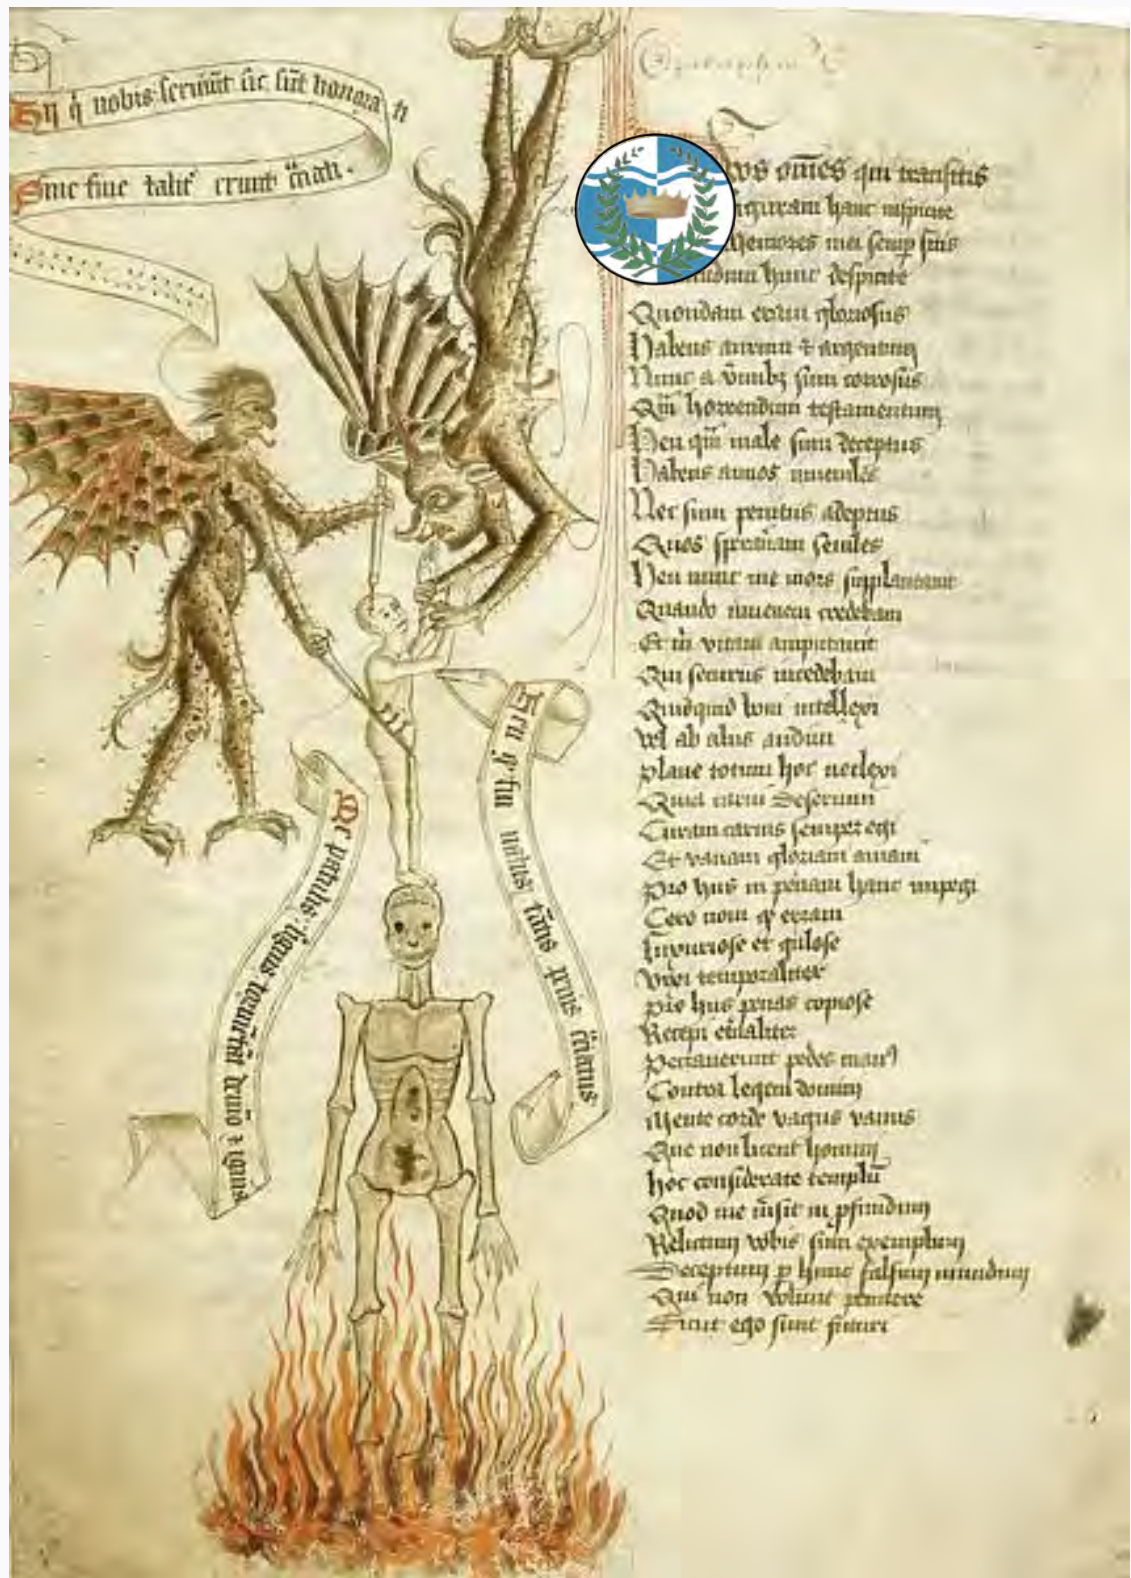 En q̇ nobis seruiūt sic sūt honora ti
Sine fine talit' erunt
os om̄es qui transitis
iguram hanc inspicite
Memores mei semp sitis
mundum hunc despicite
Quondam eram gloriosus
Habens aurum & argentum
Nunc a v̄mibꝫ sum corrosus
Qm̄ horrendum testamentum
Heu qm̄ male sum deceptus
Habens annos iuueniles
Nec sum penitus adeptus
Quos sperabam seniles
Heu nunc me mors supplantauit
Quando iuuenem credebam
Et m̄ vitam amputauit
Qui securus incedebam
Quidquid boni intellexi
Vel ab aliis audiui
Plane totum hoc neclexi
Quia carni deseruiui
Curam carnis semper egi
Et vanam gloriam amaui
Pro hiis in penam hanc impegi
Cerno nunc qꝫ erraui
Luxuriose et gulose
Vixi temporaliter
Pro hiis penas copiose
Recepi et̄naliter
Peccauerunt pedes manꝰ
Contra legem domini
Mente corde vagus vanus
Que non licent homini
Hoc considerate templū
Quod me misit in pfundum
Relictum vobis sum exemplum
Deceptum p hunc falsum mundum
Qui non volunt penitere
Sicut ego sunt futuri
Heu q' sū natus: tātis penis
Ve patulis: lignis torquetur &